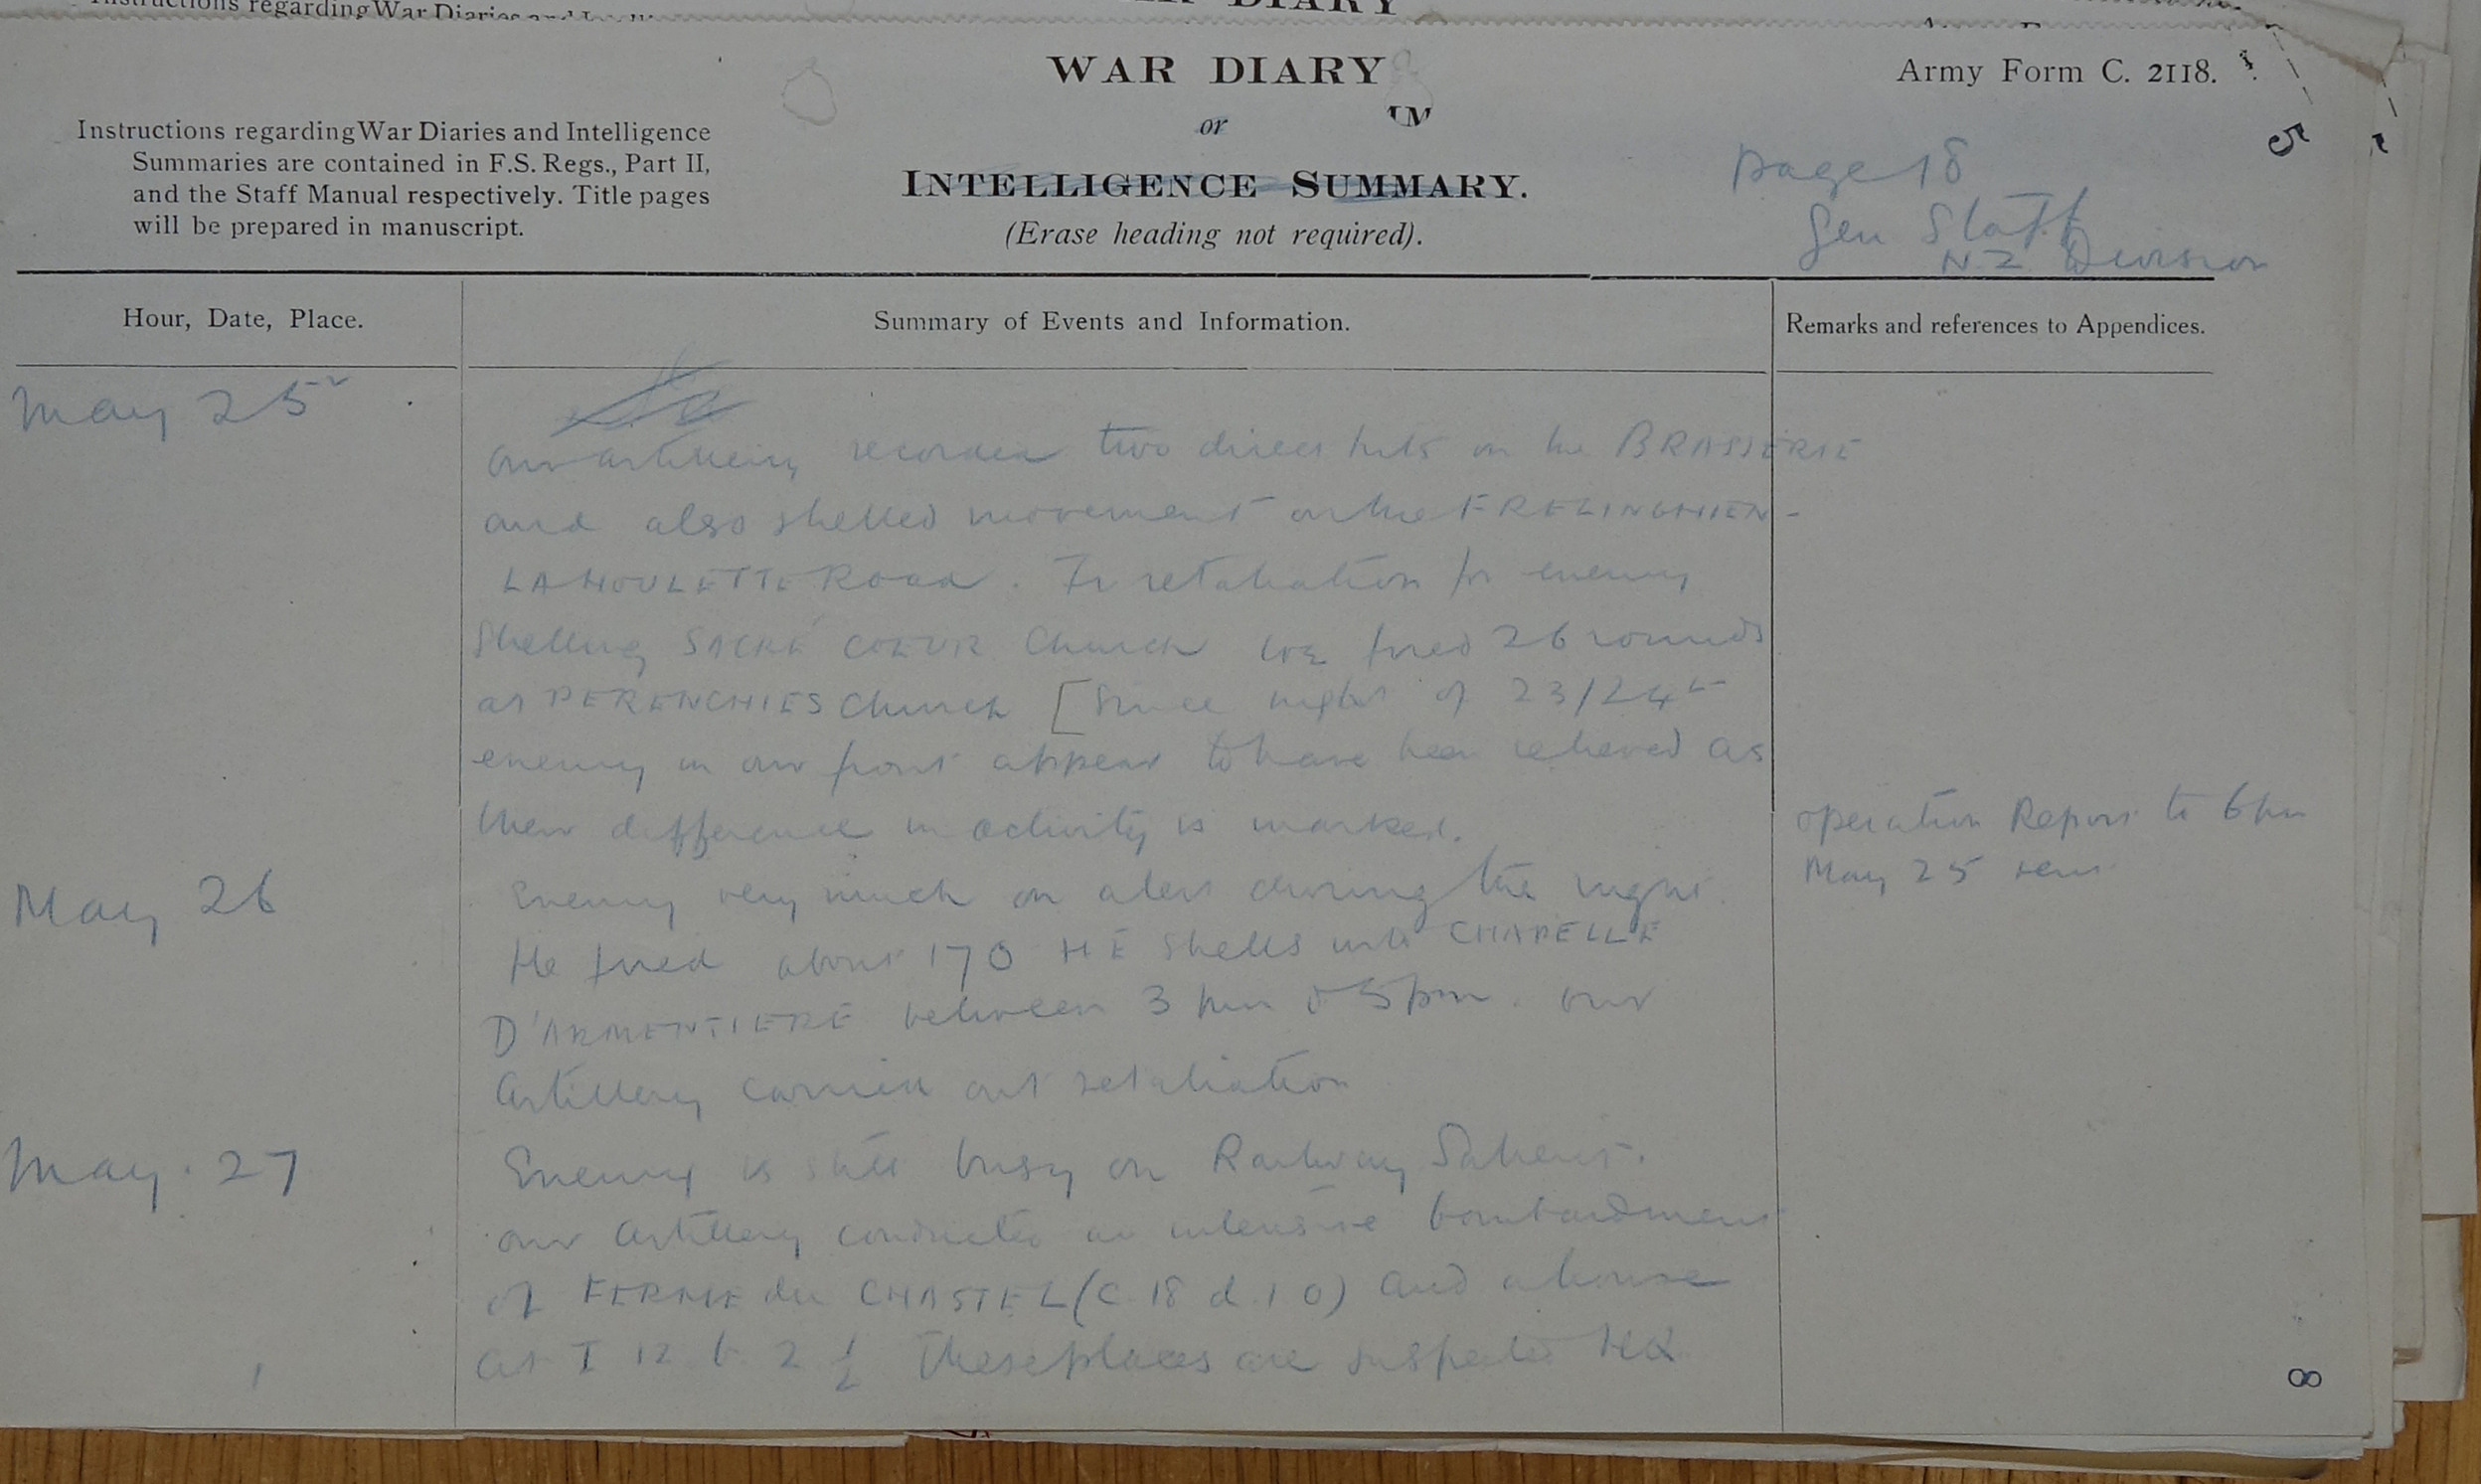 WAR DIARY
or
INTELLIGENCE SUMMARY.
(Erase heading not required).
Army Form C. 2118.
Instructions regarding War Diaries and Intelligence
Summaries are contained in F.S. Regs., Part II,
and the Staff Manual respectively. Title pages
will be prepared in manuscript.
page 18
Gen Staff
N.Z. Division
Hour, Date, Place.
Summary of Events and Information.
Remarks and references to Appendices.
May 25
our artillery recorded two direct hits on the BRASSERIE
and also shelled movement on the FRELINGHIEN-
LA HOULETTE Road. In retaliation for enemy
shelling SACRÉ COEUR Church we fired 26 rounds
at PERENCHIES Church [Since night of 23/24th
enemy in our front appear to have been relieved as
their difference in activity is marked.
operation Report to 6 pm
May 25
May 26
Enemy very much on alert during the night.
He fired about 170 HE shells into CHAPELLE
D'ARMENTIERE between 3 pm & 5 pm. our
Artillery carried out retaliation
May 27
Enemy is still busy on Railway Salient.
our artillery conducted an intensive bombardment
of FERME du CHASTEL (C. 18 d. 1 0) and a house
at I 12 b 2 ½ These places are suspected HQ
8